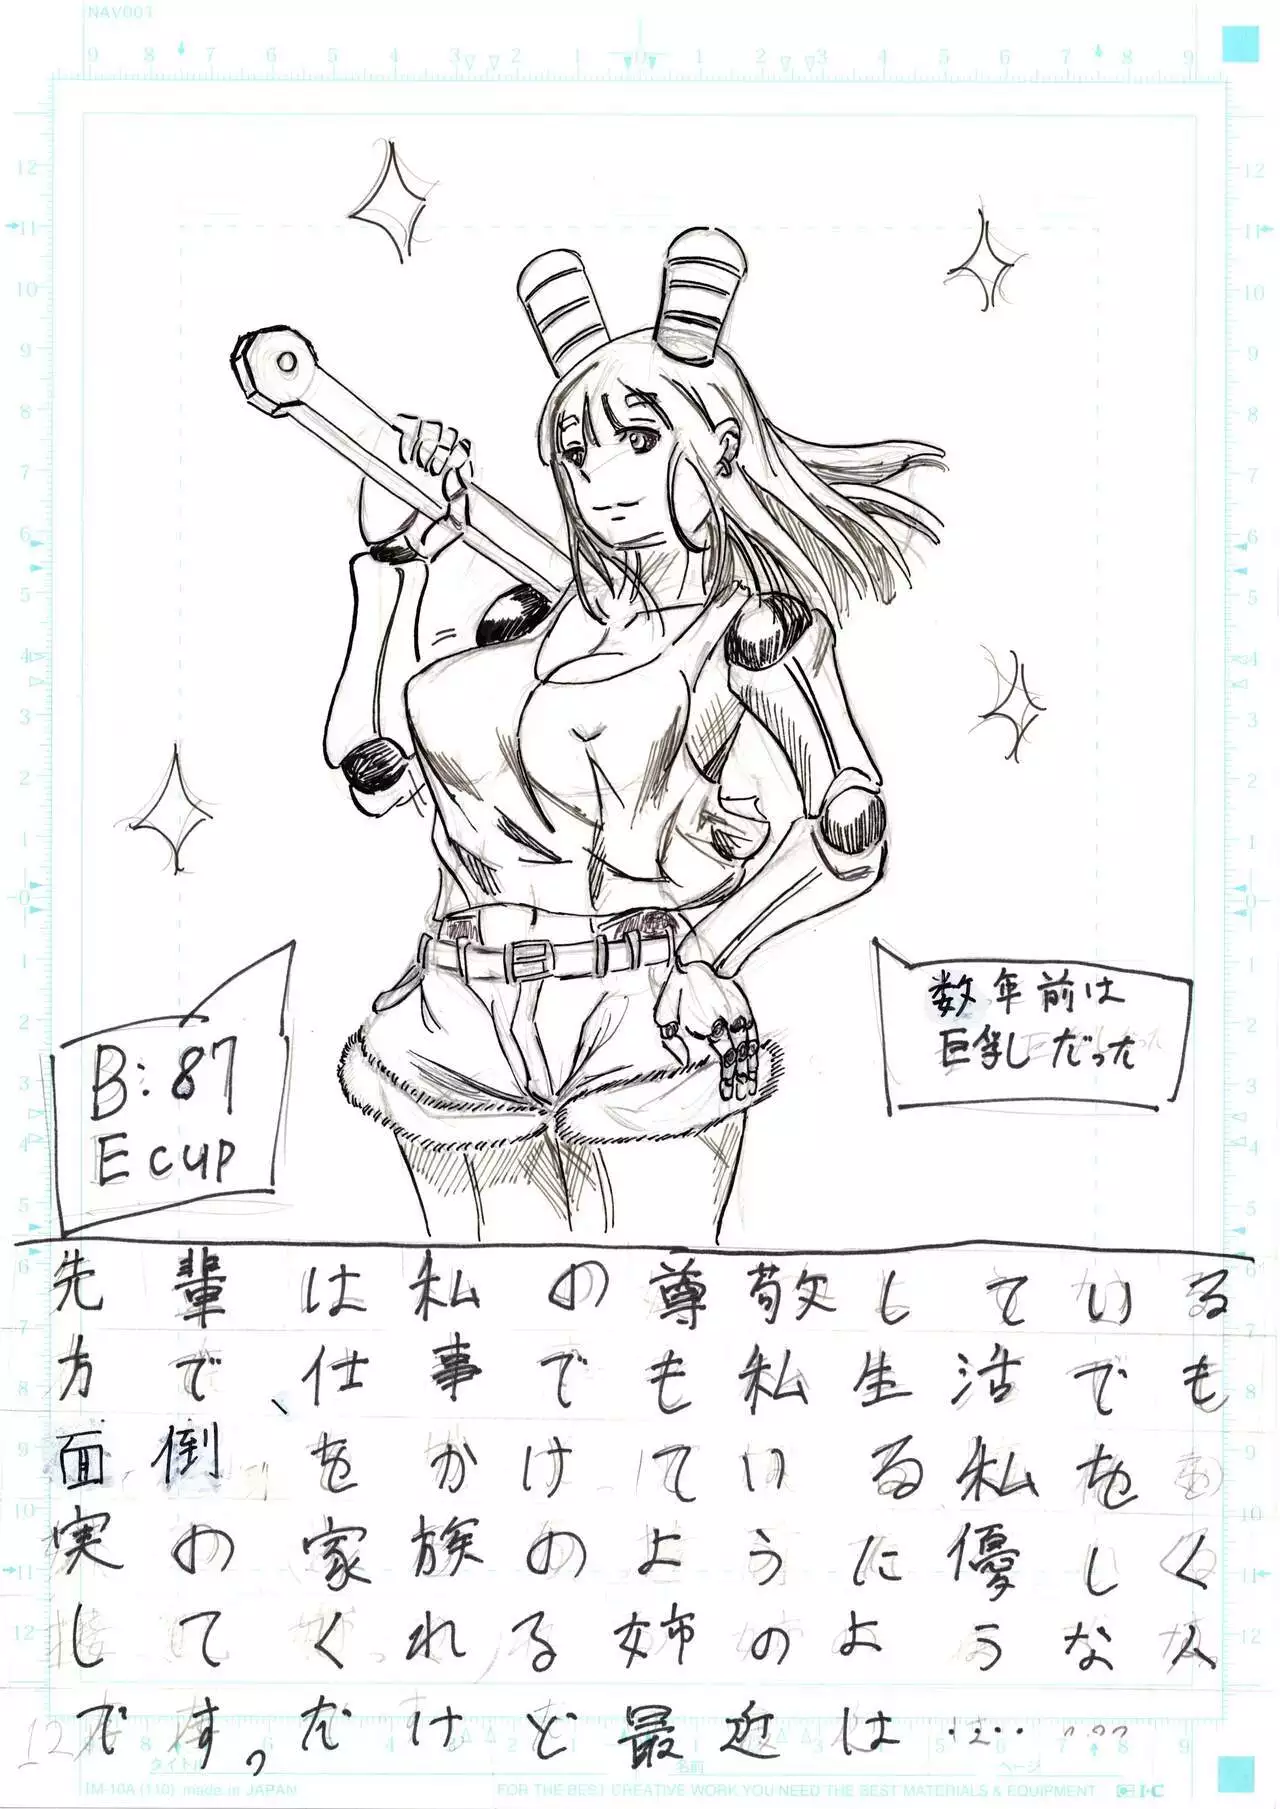 NAV001
数年前は
巨乳しだった
B:87
E cup
先輩は私の尊敬している
方で、仕事でも私生活でも
面倒をかけている私を
実の家族のように優しく
してくれる姉のような人
です。だけど最近は……
タイトル
名前
ページ
IM-10A (110) made in JAPAN
FOR THE BEST CREATIVE WORK YOU NEED THE BEST MATERIALS & EQUIPMENT
I·C